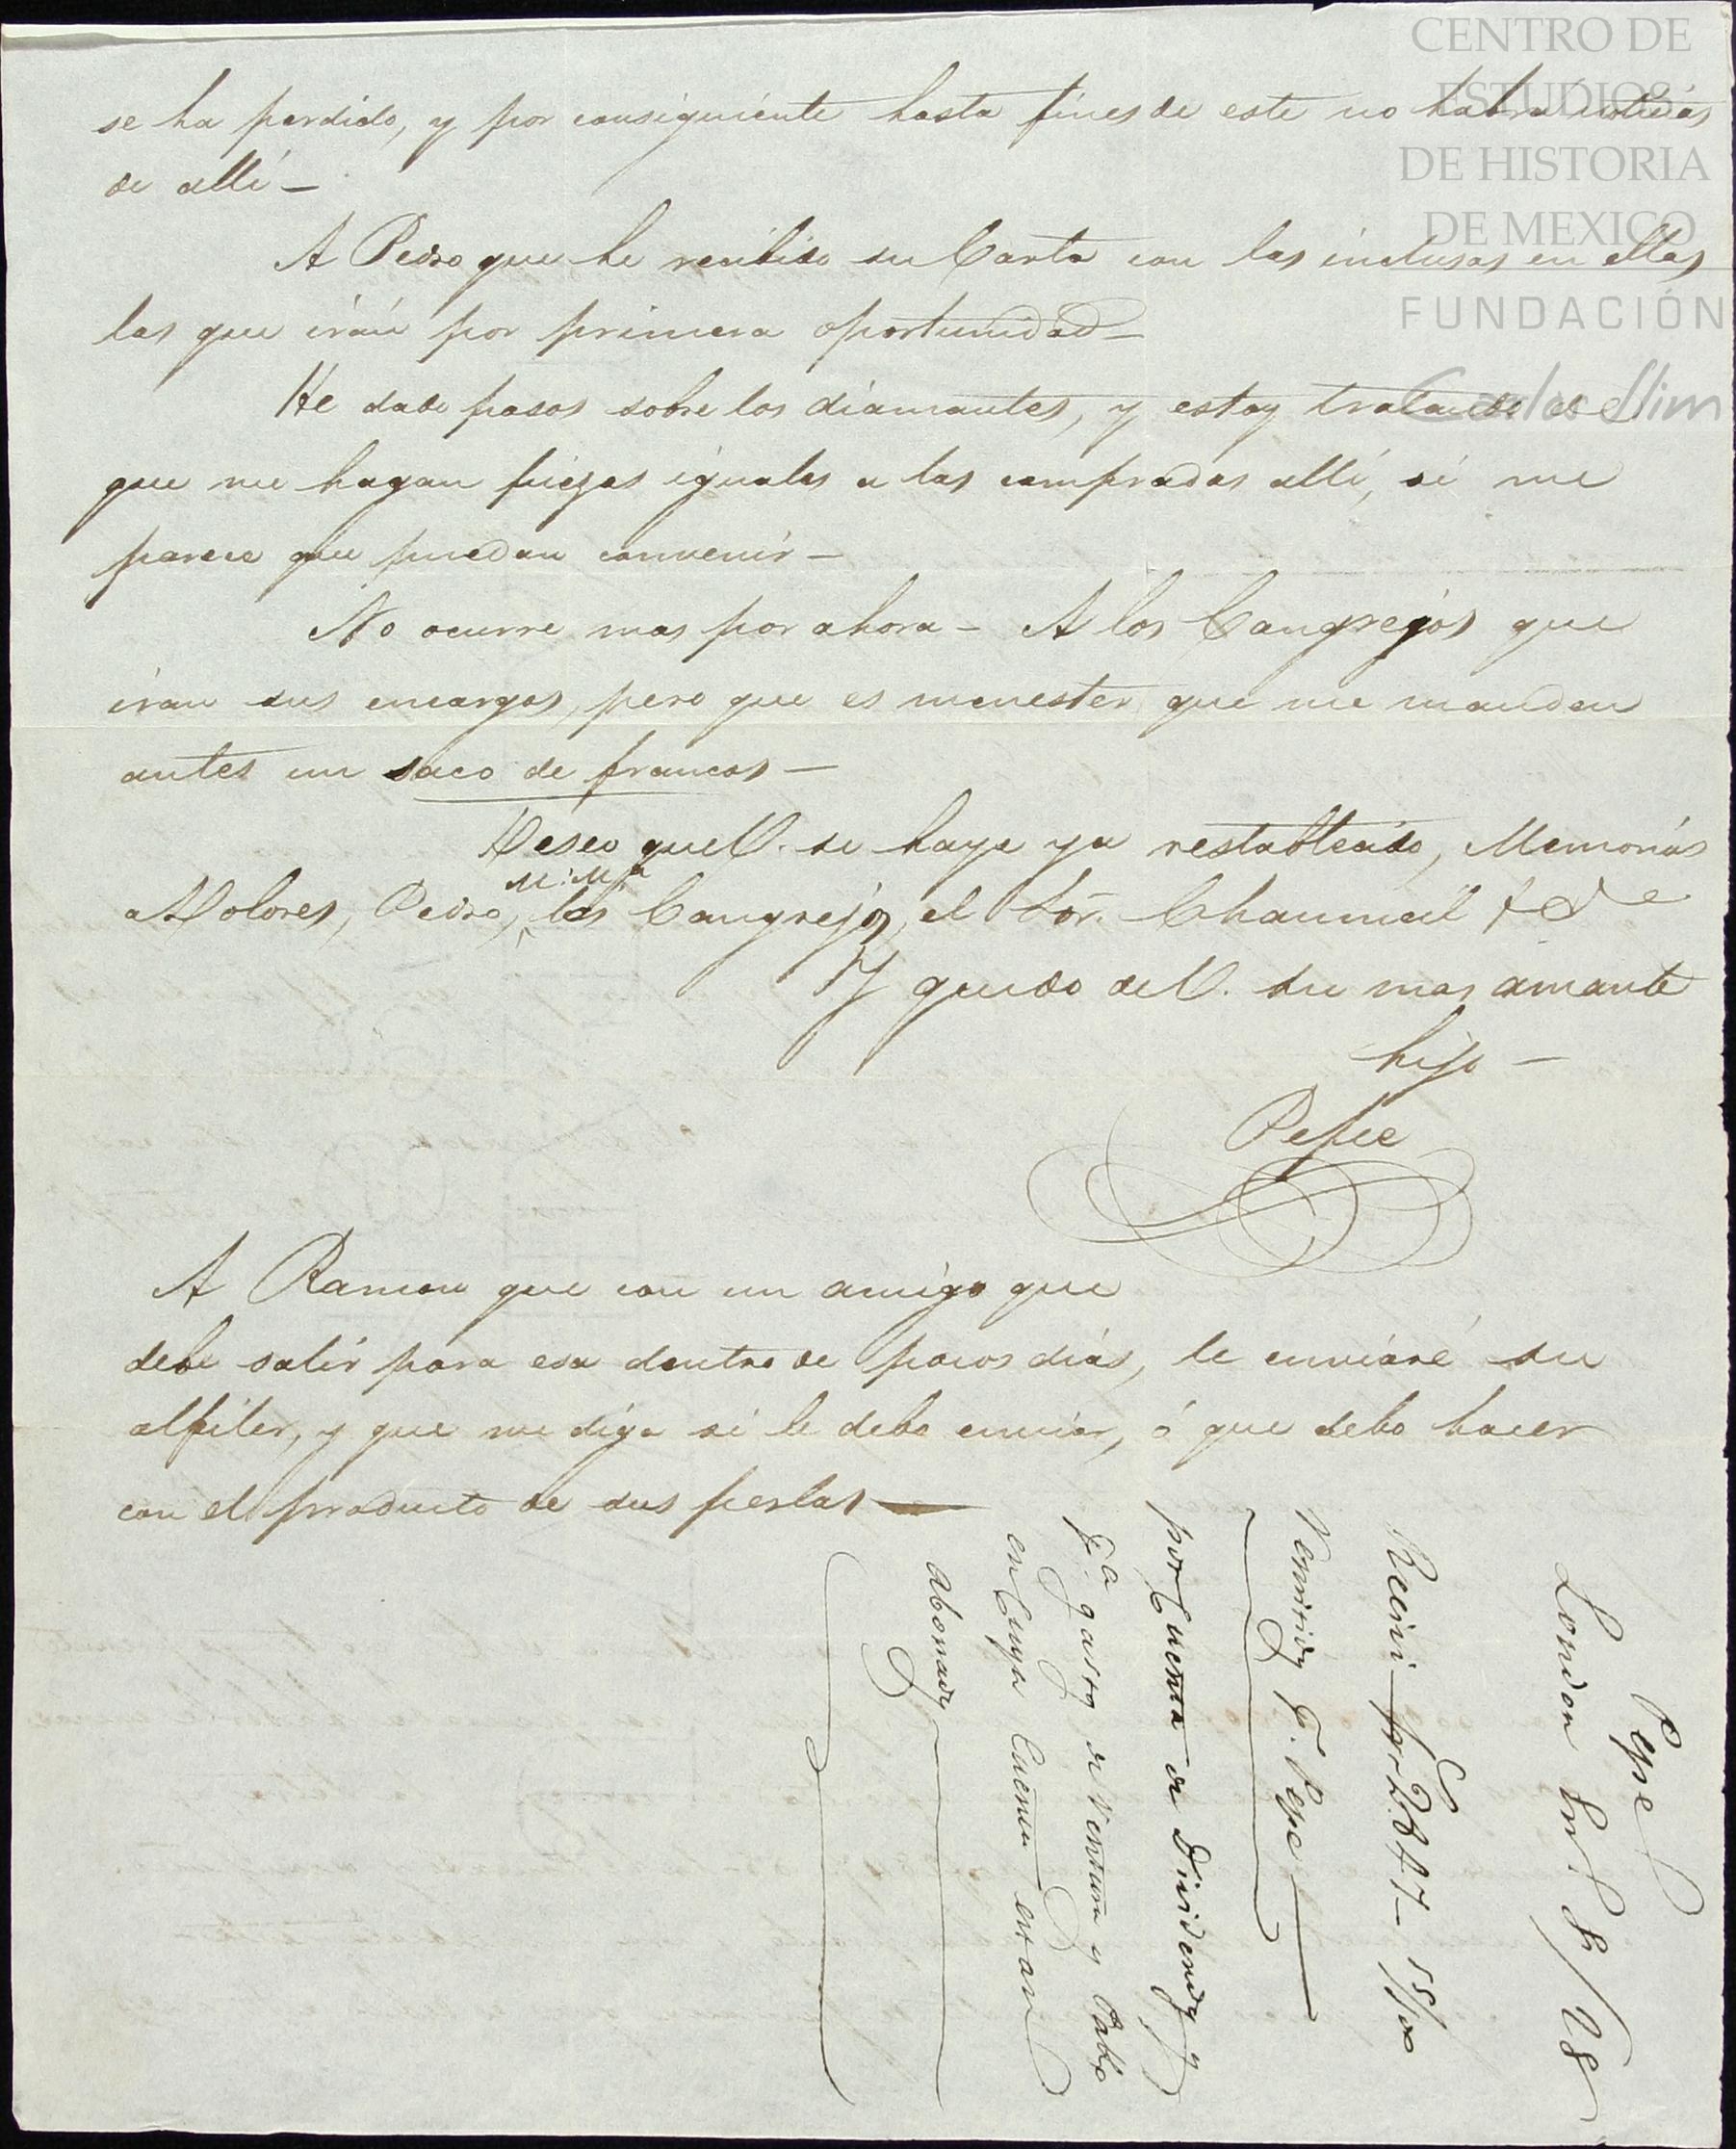 CENTRO DE
ESTUDIOS
DE HISTORIA
DE MEXICO
FUNDACIÓN
Carlos Slim
se ha perdido, y por consiguiente hasta fines de este no habra noticias
de allí —
A Pedro que he recibido su Carta con las inclusas en ellas
las que irán por primera oportunidad —
He dado pasos sobre los diamantes, y estoy tratando de
que me hagan piezas iguales a las compradas allí, si me
parece que puedan convenir —
No ocurre mas por ahora — A los Cangrejos que
iran sus encargos, pero que es menester que me manden
antes un saco de francos —
Deseo que V. se haya ya restablecido, Memorias
a Dolores, Pedro, los Cangrejos, el Sór. Chaumeil &
Y quedo de V. su mas amante
hijo —
Pepe
A Ramon que con un amigo que
debe salir para esa dentro de pocos días, le enviaré su
alfiler, y que me diga si le debo enviar, ó que debo hacer
con el producto de sus perlas —
Pepe
London
Recivi
remitidos Pepe
por Cuenta de Dividendos
gastos de Ventura y Pablo
en Cuya Cuenta estan
abonados